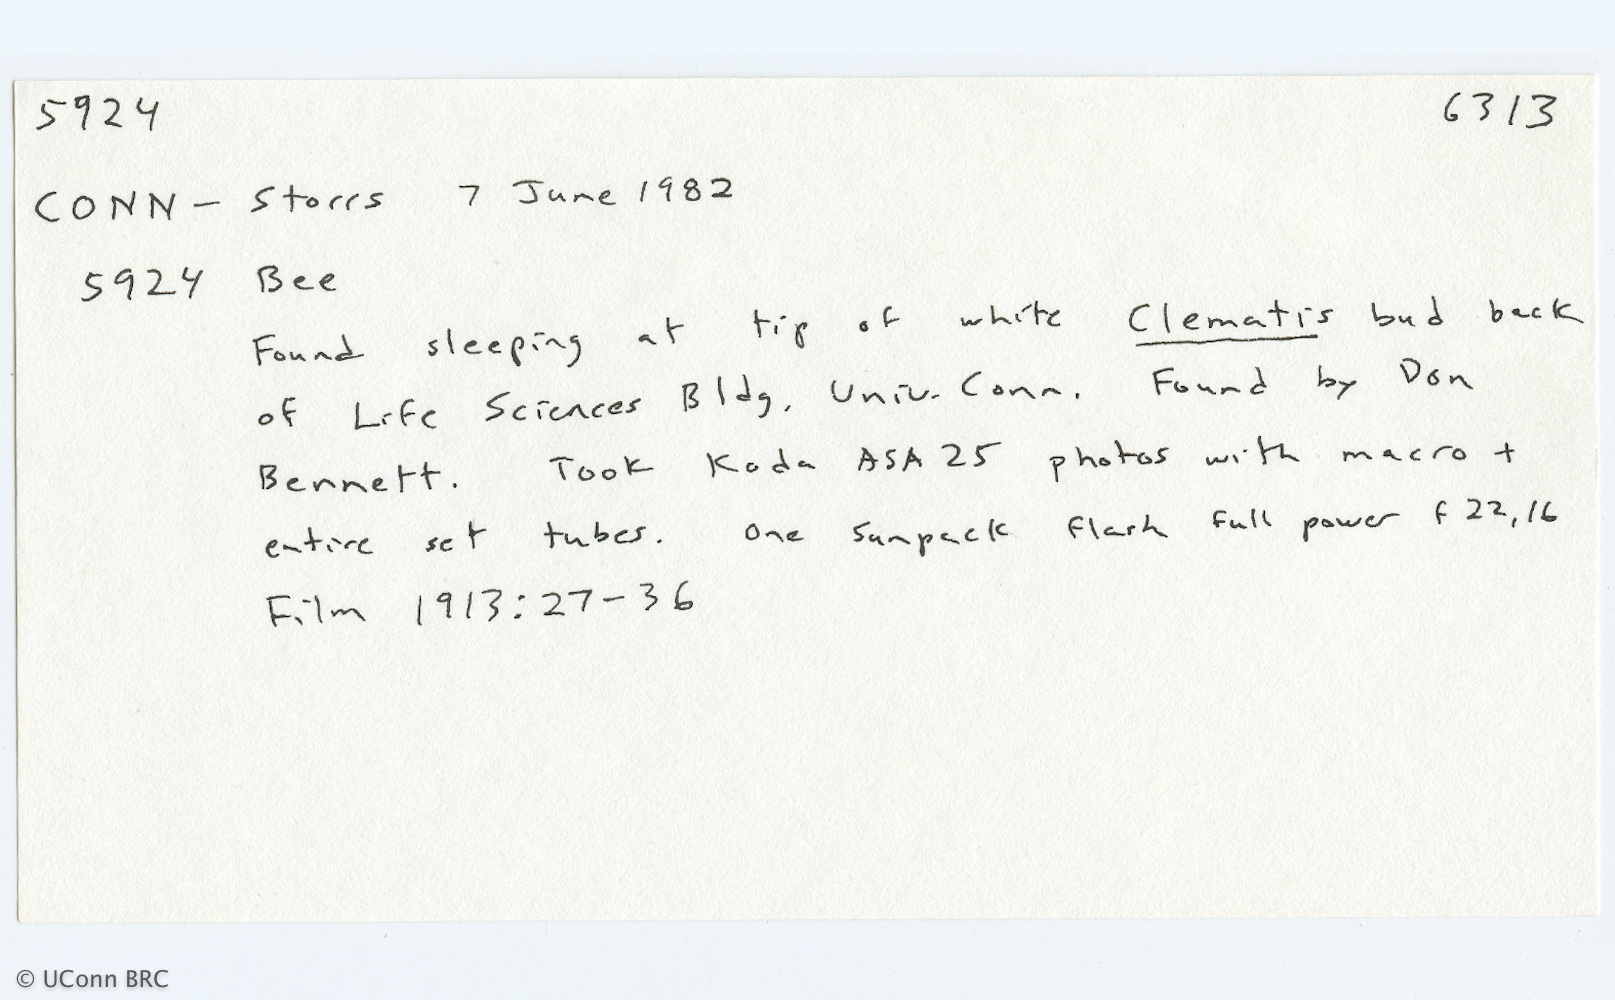 5924 6313
CONN - Storrs 7 June 1982
5924 Bee
Found sleeping at tip of white Clematis bud back
of Life Sciences Bldg, Univ. Conn. Found by Don
Bennett. Took Koda ASA 25 photos with macro +
entire set tubes. One Sunpack flash full power f 22, 16
Film 1913: 27-36
© UConn BRC